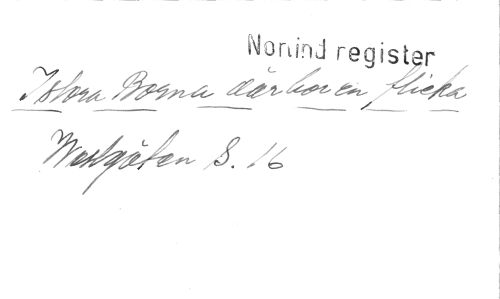 Nonind register
I stora Borna där bor en flicka
Westgöten S. 16